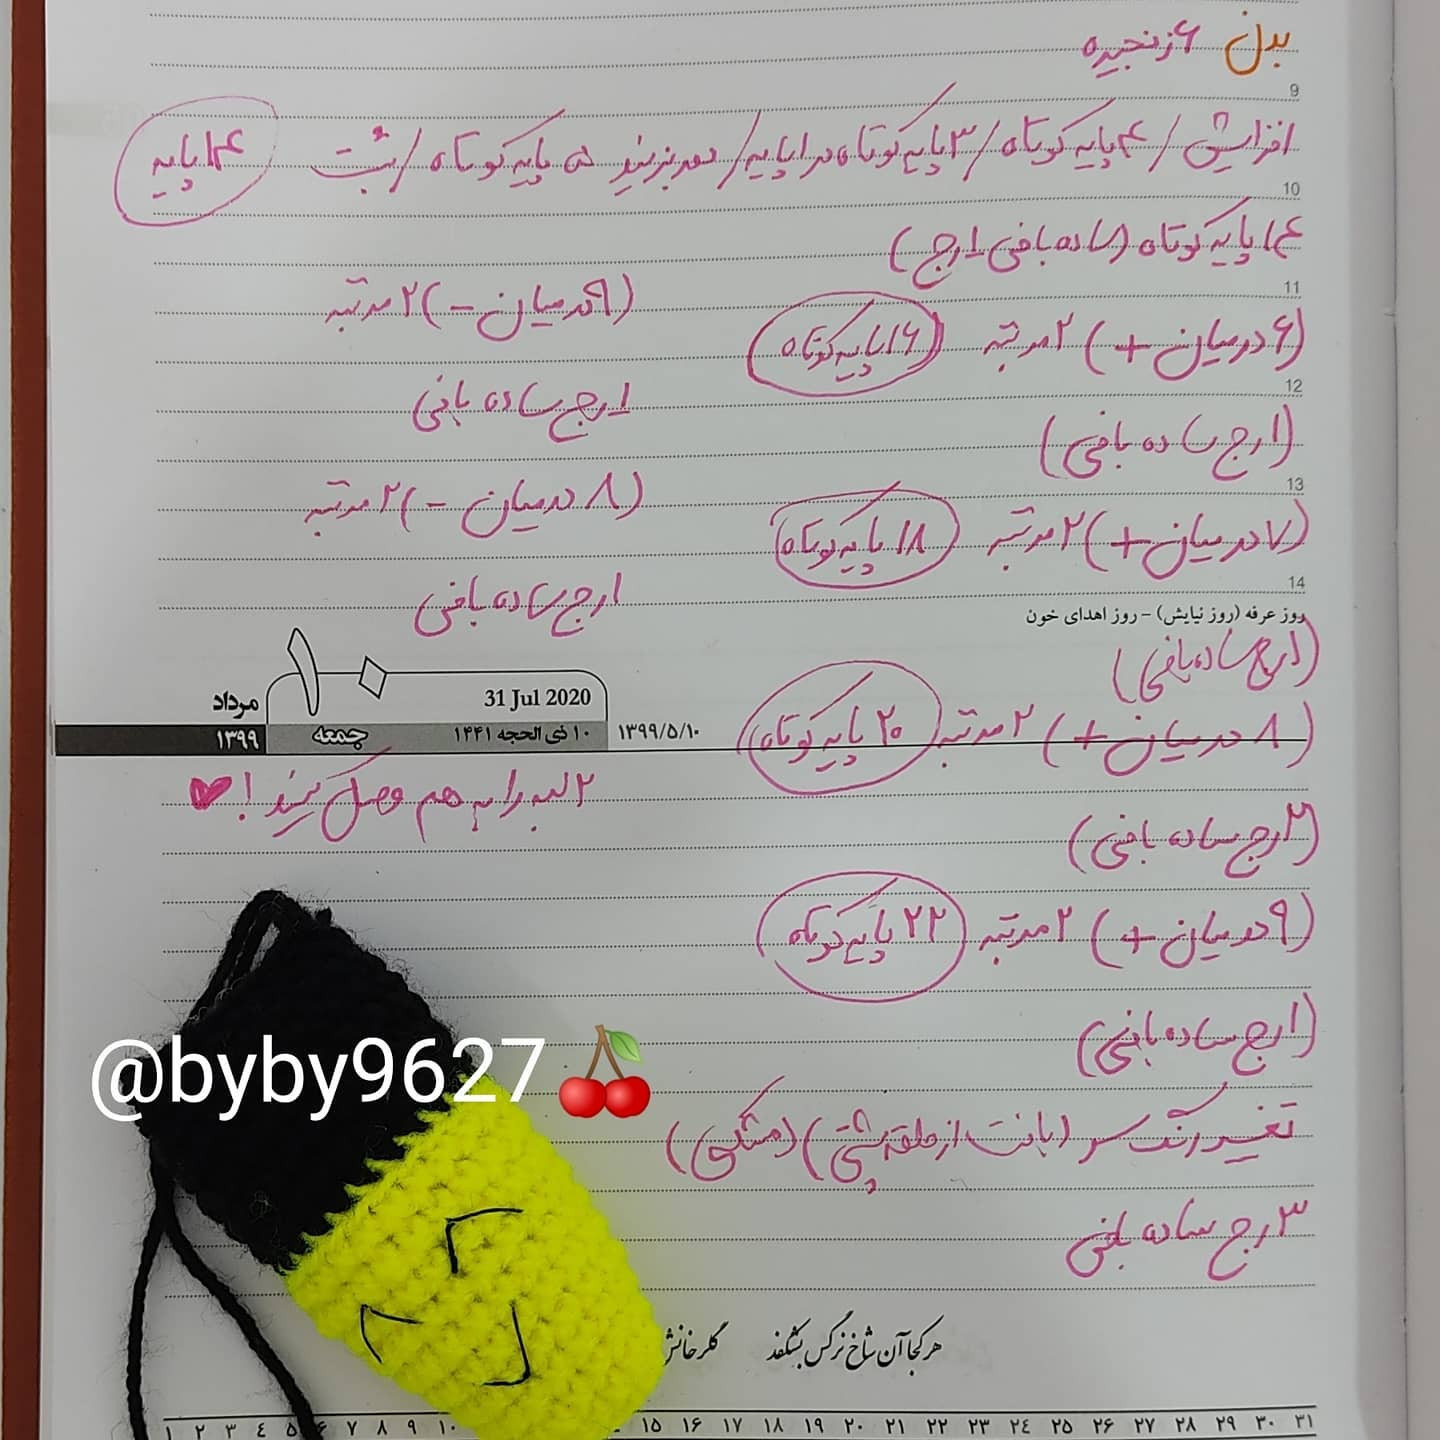 بدن ۶ زنجیره
9
افزایش / ۴ پایه کوتاه / ۳ پایه کوتاه در ۱ پایه / دور بزنید ۵ پایه کوتاه / پشت ۱۴ پایه
10
۱۴ پایه کوتاه (ساده بافی ۱ رج)
11
(۶ درمیان +) ۲ مرتبه ۱۶ پایه کوتاه
12
(۱ رج ساده بافی)
13
(۷ درمیان +) ۲ مرتبه ۱۸ پایه کوتاه
14
روز عرفه (روز نیایش) - روز اهدای خون
(۱ رج ساده بافی)
(۸ درمیان +) ۲ مرتبه ۲۰ پایه کوتاه
(۲ رج ساده بافی)
(۹ درمیان +) ۲ مرتبه ۲۲ پایه کوتاه
(۱ رج ساده بافی)
تغییر رنگ سر (بافت از حلقه پشتی) (مشکی)
۳ رج ساده بافی
(۹ درمیان -) ۲ مرتبه
۱ رج ساده بافی
(۸ درمیان -) ۲ مرتبه
۱ رج ساده بافی
۱۰ مرداد
31 Jul 2020
۱۳۹۹/۵/۱۰
۱۰ ذی الحجه ۱۴۴۱
جمعه
۱۳۹۹
۲ لبه را به هم وصل کنید! ♥
@byby9627🍒
هر کجا آن شاخ نرگس بشکفد گلرخانش
۱ ۲ ۳ ۴ ۵ ۶ ۷ ۸ ۹ ۱۰ ۱۵ ۱۶ ۱۷ ۱۸ ۱۹ ۲۰ ۲۱ ۲۲ ۲۳ ۲۴ ۲۵ ۲۶ ۲۷ ۲۸ ۲۹ ۳۰ ۳۱